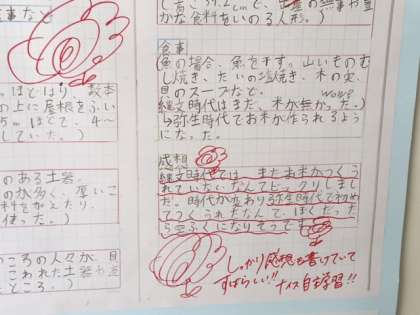 事など
ほどほり、数本
の上に屋根をふい
5mほどで、4〜
していた。)
のある土器。
のが多く、厚いこ
料をたくわえたり、
使った。)
ころの人々が、貝
こわれた土器や
ところ。)
かな食料をいのる人形。)
食事
魚の場合、魚を干す。山いものむ
し焼き、たいの塩焼き、木の実、
貝のスープなど。
wow?
縄文時代はまだ、米が無かった。)
↳弥生時代でお米が作られるよう
になった。
感想
縄文時代では、まだお米がつくら
れていないなんてビックリしまし
だ。時代が変わり弥生時代で初め
てつくられたなんて、ぼくだった
らくふくになりそうです
しっかり感想も書けていて
すばらしい!! ナイス自主学習!!